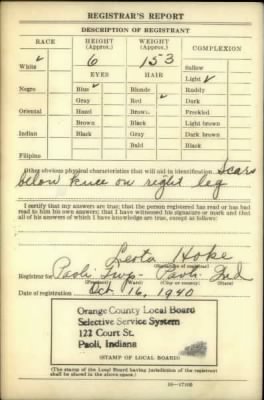 REGISTRAR'S REPORT
DESCRIPTION OF REGISTRANT
RACE HEIGHT (Approx.) WEIGHT (Approx.) COMPLEXION
White ✓ 6 153 Sallow
EYES HAIR Light ✓
Negro Blue ✓ Blonde Ruddy
Gray Red ✓ Dark
Oriental Hazel Brown Freckled
Brown Black Light brown
Indian Black Gray Dark brown
Bald Black
Filipino
Other obvious physical characteristics that will aid in identification Scars
below knee on right leg
I certify that my answers are true; that the person registered has read or has had
read to him his own answers; that I have witnessed his signature or mark and that
all of his answers of which I have knowledge are true, except as follows:
Leota Hoke
(Signature of registrar)
Registrar for Paoli Twp- Paoli Ind
(Precinct) (Ward) (City or county) (State)
Date of registration Oct 16, 1940
Orange County Local Board
Selective Service System
122 Court St.
Paoli, Indiana
(STAMP OF LOCAL BOARD)
(The stamp of the Local Board having jurisdiction of the registrant
shall be placed in the above space.)